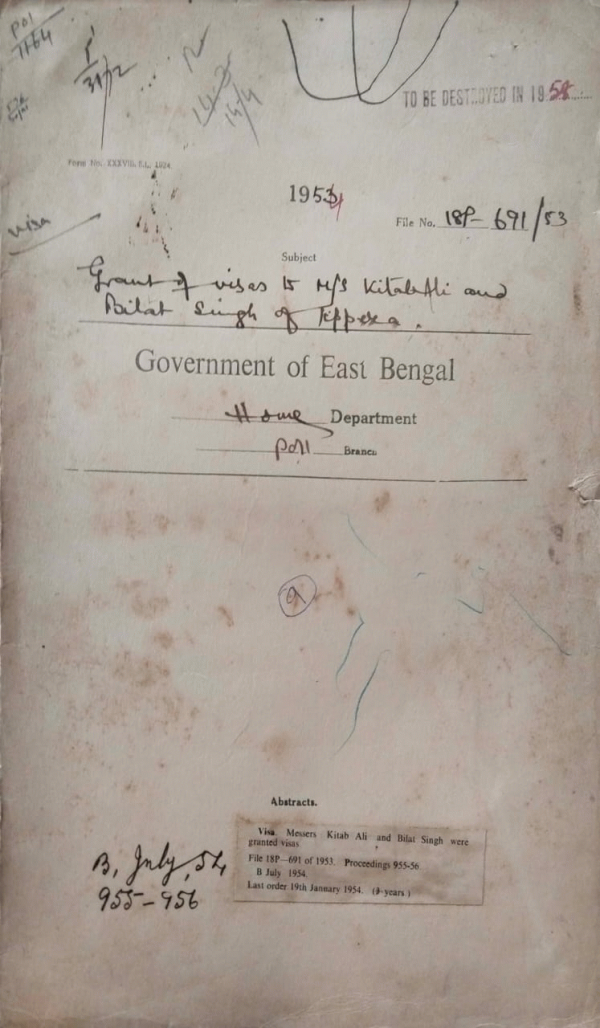 Pol
1164
31/12
14/4
TO BE DESTROYED IN 1958
Form No. XXXVII, S.L. 1924
1953/4
File No. 18P-691/53
Visa
Subject
Grant of visas to M/S Kitab Ali and
Bilat Singh of Tippera.
Government of East Bengal
Home Department
Poll Branch
9
Abstracts.
Visa Messers Kitab Ali and Bilat Singh were
granted visas
File 18P—691 of 1953. Proceedings 955-56
B July 1954.
Last order 19th January 1954. (3 years)
B, July, 54
955-956